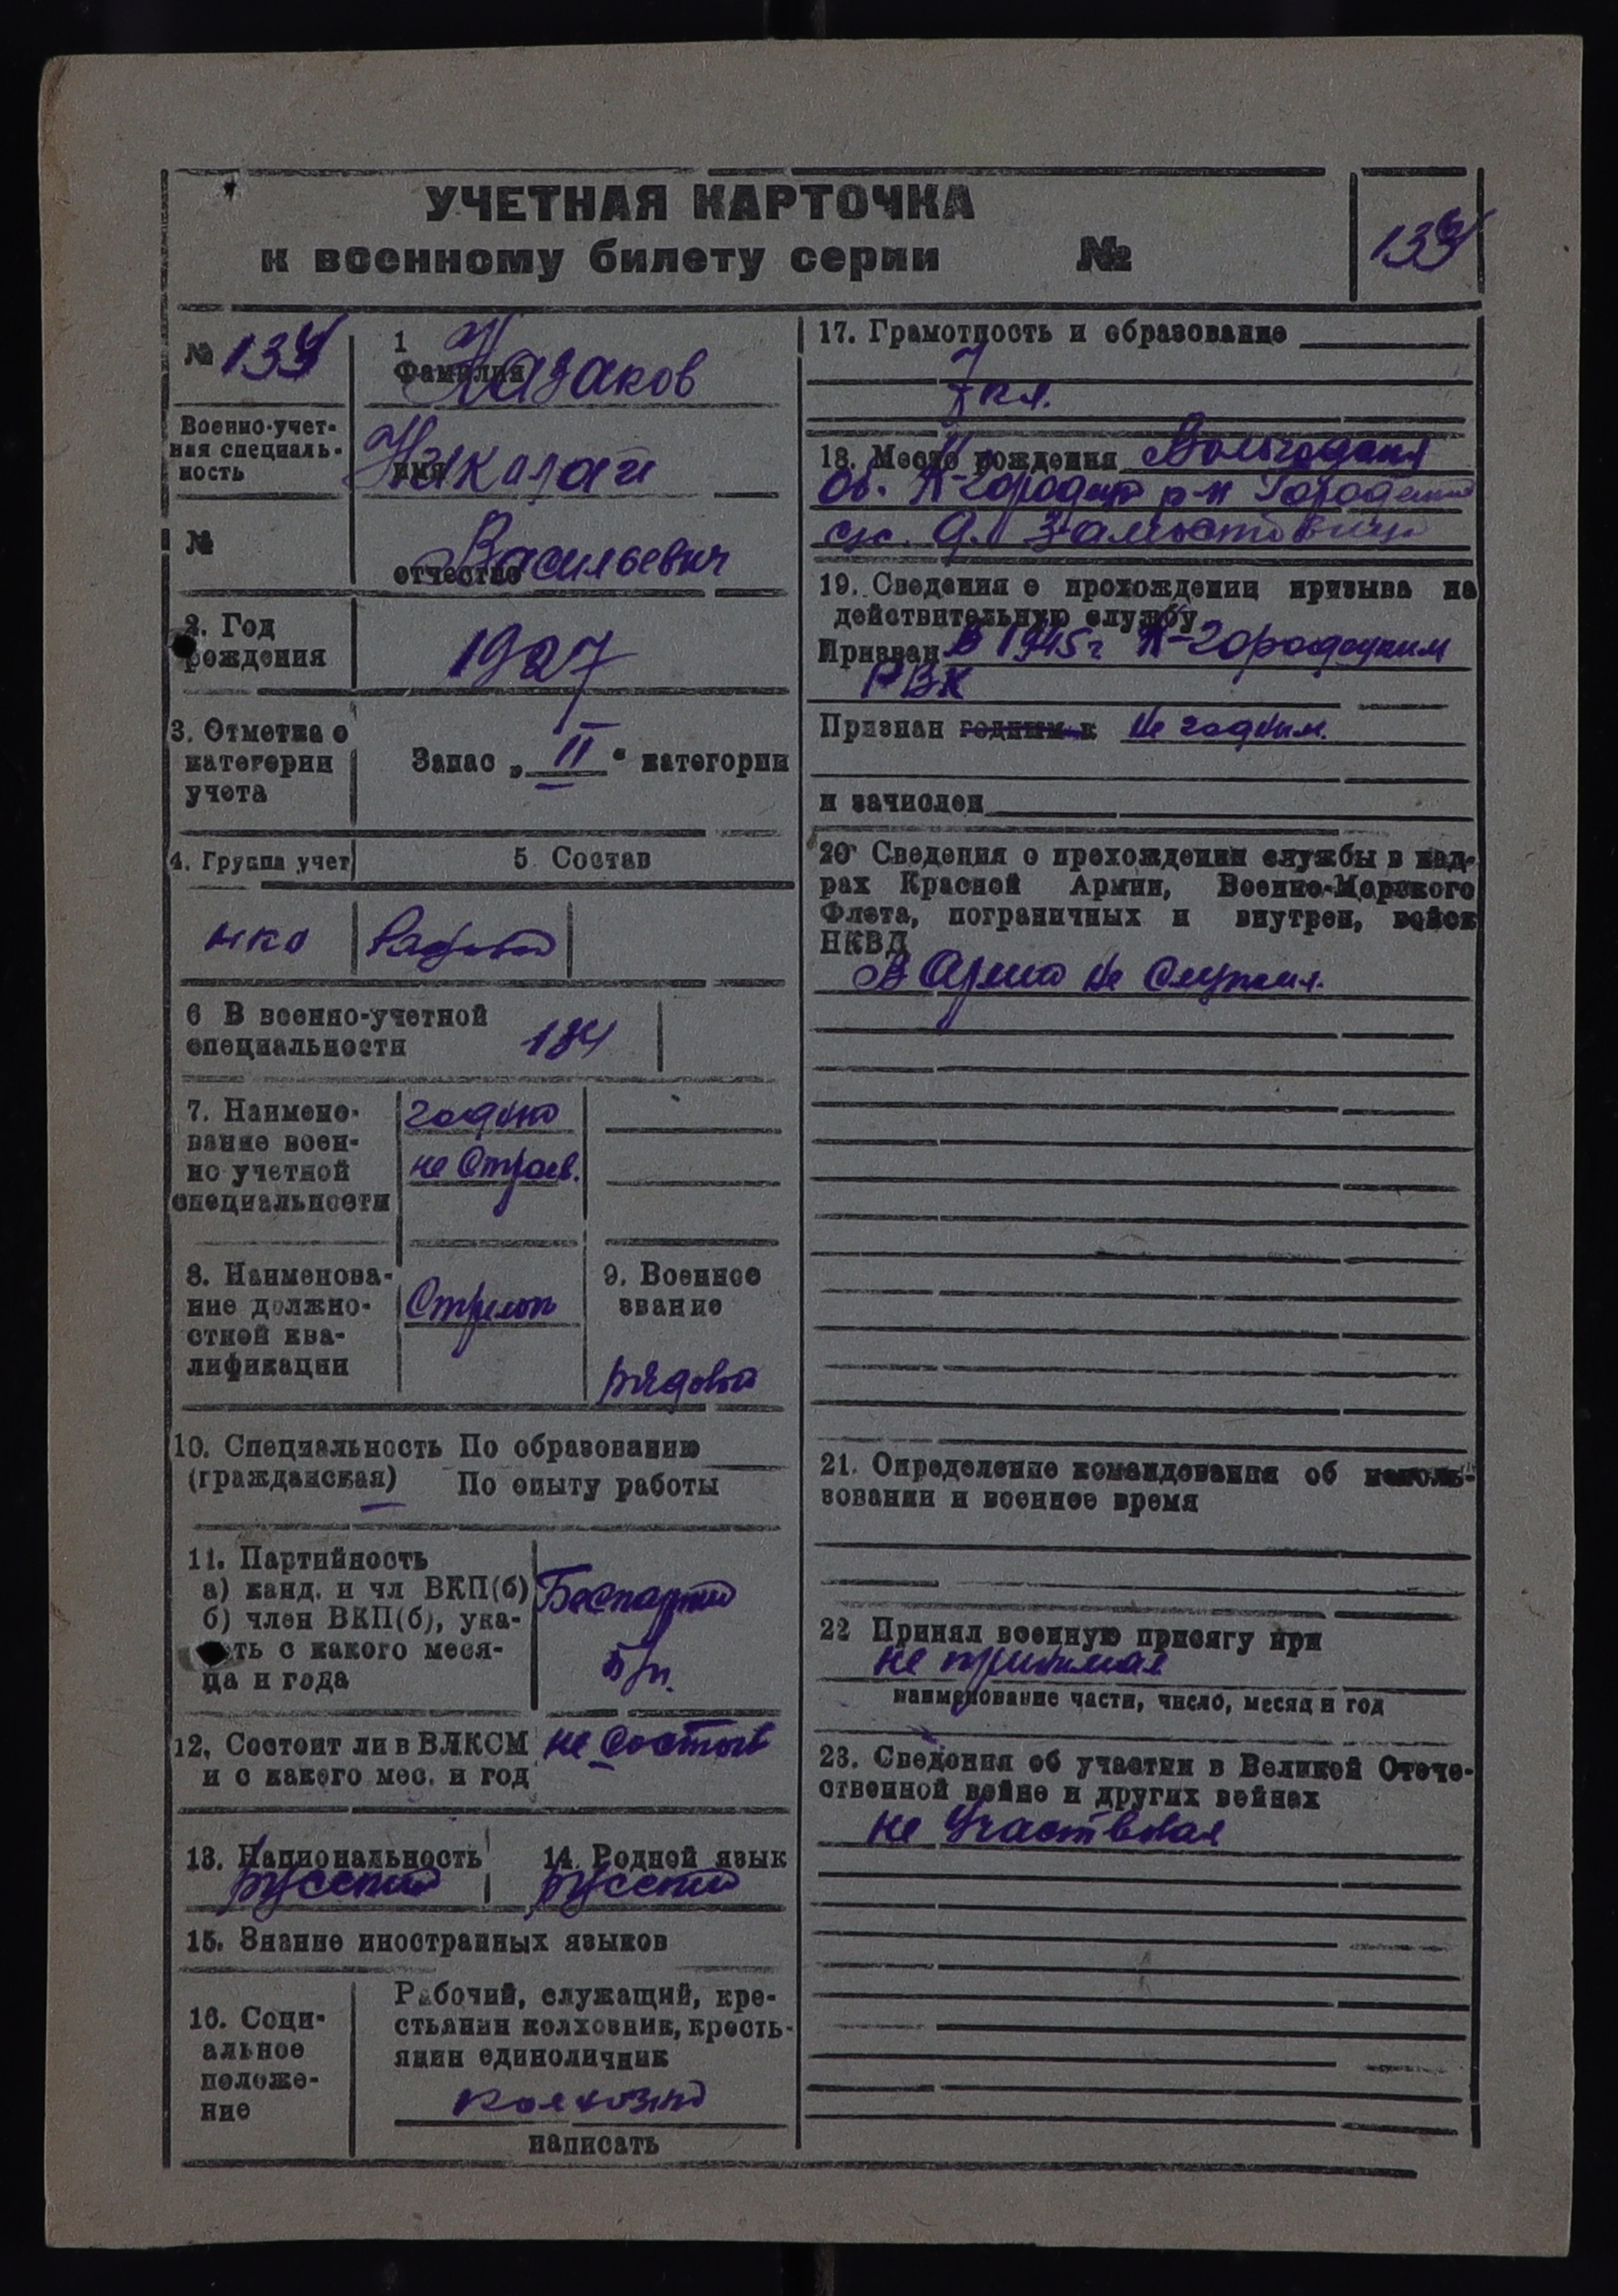 УЧЕТНАЯ КАРТОЧКА
к военному билету серии №
№ 134
1
Фамилия Казаков
Военно-учет-
ная специаль-
ность
имя Николай
№
отчество Васильевич
2. Год
рождения
1927
3. Отметка о
категории
учета
Запас „ II “ категории
4. Группа учет
5 Состав
НКО
Рядовой
6 В военно-учетной
специальности
134
7. Наимено-
вание воен-
но учетной
специальности
годный
не строев.
8. Наименова-
ние должно-
стной ква-
лификации
Стрелок
9. Военное
звание
рядовой
10. Специальность По образованию
(гражданская) По опыту работы
11. Партийность
а) канд. и чл ВКП(б)
б) член ВКП(б), ука-
ть с какого меся-
ца и года
Беспартий
б/п.
12, Состоит ли в ВЛКСМ
и с какого мес. и год
не состоит
13. Национальность
русский
14. Родной язык
русский
15. Знание иностранных языков
16. Соци-
альное
положе-
ние
Рабочий, служащий, кре-
стьянин колхозник, кресть-
янин единоличник
написать
17. Грамотность и образование
7 кл.
18. Место рождения
Об. К-Городецк р-н Городецкий
с/с. д.
19. Сведения о прохождении призыва на
действительную службу
Призван в 1945 г К-Городецким
РВК
Признан годным к не годным.
и зачислен
20 Сведения о прохождении службы в кад-
рах Красной Армии, Военно-Морского
Флота, пограничных и внутрен, войск
НКВД
В Армии не служил.
21. Определение командования об исполь-
зовании и военное время
22 Принял военную присягу при
не принимал
наименование части, число, месяц и год
23. Сведения об участии в Великой Отече-
ственной войне и других войнах
не участвовал